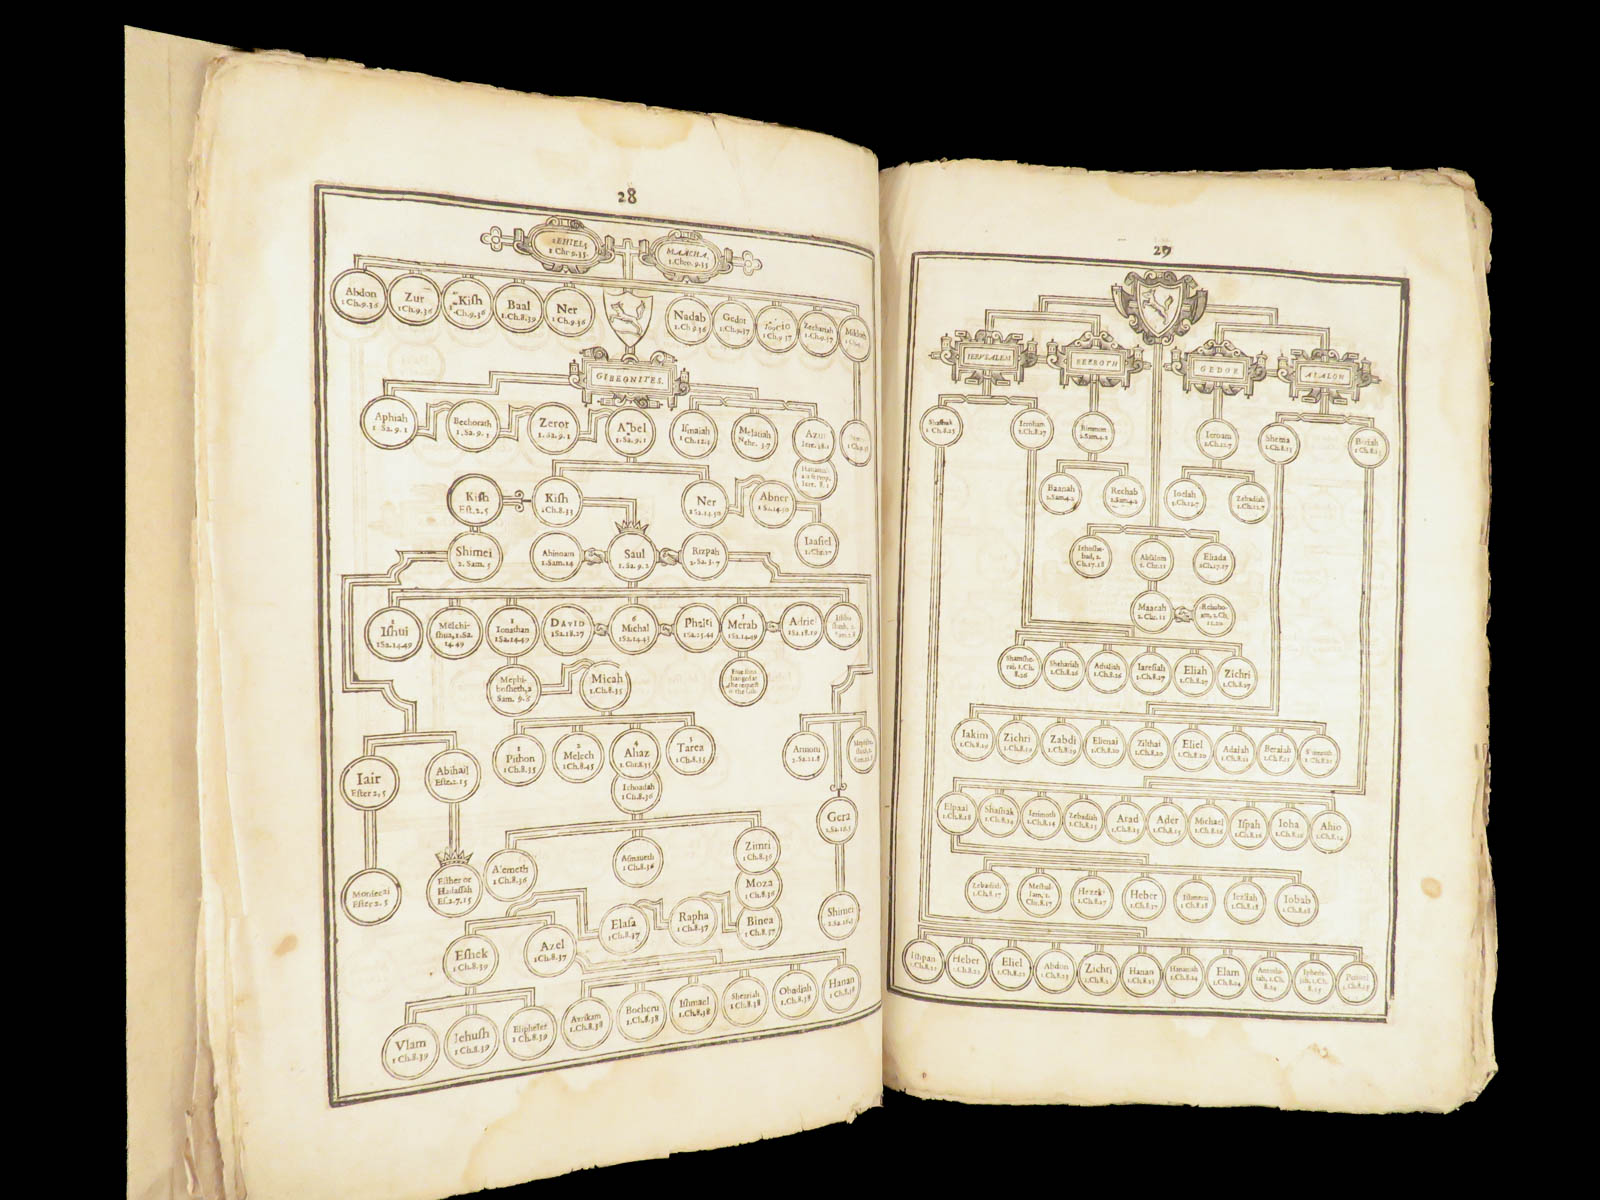 28
IEHIEL
1 Chr 9.35.
MAACHA.
1. Chro. 9.35
Abdon
1 Ch. 9.36
Zur
1 Ch. 9.36
Kish
1. Ch. 9.36
Baal
1. Ch. 8.39
Ner
1 Ch. 9.36
Nadab
1. Ch. 9.36
Gedor
1. Ch. 9.37
1. Ch. 9.37
Zechariah
1. Ch. 9.37
GIBEONITES.
Aphiah
1. Sa. 9. 1
Bechorath
1. Sa. 9. 1
Zeror
1. Sa. 9. 1
Abel
1. Sa. 9. 1
Ismaiah
1 Ch. 12.4
Melatiah
Nehe. 3.7
Azur
Iere. 28.1
Kish
Est. 2. 5
Kish
1 Ch. 8.33
Ner
1 Sa. 14.50
Abner
1 Sa. 14.50
Iaasiel
1. Chr. 27
Shimei
2. Sam. 5
Ahinoam
1. Sam. 14
Saul
1. Sa. 9. 2
Rizpah
2. Sa. 3. 7
2
Ishui
1 Sa. 14.49
Melchi-
shua, 1. Sa.
14 49
1
Ionathan
1 Sa. 14.49
DAVID
1 Sa. 18.27
6
Michal
1 Sa. 14.49
Phalti
1 Sa. 25.44
5
Merab
1 Sa. 14.49
Adriel
1 Sa. 18.19
Mephi-
bosheth, 2
Sam. 9. 6
Micah
1. Ch. 8.35
1
Pithon
1 Ch. 8.35
2
Melech
1 Ch. 8.45
4
Ahaz
1 Chr. 8.35
3
Tarea
1 Ch. 8.35
Armoni
2. Sa. 21.8
Iair
Ester 2, 5
Abihail
Este. 2. 15
Iehoadah
1 Ch. 8.36
Gera
2. Sa. 16.5
Alemeth
1 Ch. 8.36
Asmaueth
1 Ch. 8.36
Zimri
1 Ch. 8.36
Mordecai
Ester 2. 5
Esther or
Hadassah
Es. 2. 7, 15
Moza
1 Ch. 8.36
Elasa
1 Ch. 8.37
Rapha
1 Ch. 8.37
Binea
1 Ch. 8.37
Shimei
2. Sa. 16.5
Eshek
1 Ch. 8.39
Azel
1 Ch. 8.37
Vlam
1 Ch. 8.39
Jehush
1 Ch. 8.39
Eliphelet
1 Ch. 8.39
Azrikam
1. Ch. 8.38
Bocheru
1. Ch. 8.38
Ishmael
1. Ch. 8.38
Sheariah
1 Ch. 8.38
Obadiah
1. Ch. 8.38
Hanan
1 Ch. 8.38
29
IERVSALEM
BEEROTH
GEDOR
AIALON
Shashak
1 Ch. 8.25
Ieroham
1. Ch. 8.27
Rimmon
2. Sam. 4.2
Ieroam
1. Ch. 12.7
Shema
1. Ch. 8.13
Beriah
1 Ch. 8.13
Baanah
2. Sam. 4.2
Rechab
2. Sam. 4.2
Ioelah
1. Ch. 12.7
Zebadiah
1. Ch. 12.7
Iehosha-
bad, 2.
Ch. 17.18
Absalom
2. Chr. 11
Eliada
2 Ch. 17.17
Maacah
2. Chr. 11
Rehobo-
am, 2. Ch.
11.20
Shamshe-
rai, 1. Ch.
8.26
Shehariah
1. Ch. 8.26
Athaliah
1. Ch. 8.26
Iaresiah
1. Ch. 8.27
Eliah
1. Ch. 8.27
Zichri
1. Ch. 8.27
Iakim
1. Ch. 8.19
Zichri
1. Ch. 8.19
Zabdi
1. Ch. 8.19
Elienai
1. Ch. 8.20
Zilthai
1. Ch. 8.20
Eliel
1. Ch. 8.20
Adaiah
1. Ch. 8.21
Beraiah
1. Ch. 8.21
Shimrath
1. Ch. 8.21
Elpaal
1. Ch. 8.18
Shashak
1. Ch. 8.14
Ierimoth
1. Ch. 8.14
Zebadiah
1. Ch. 8.15
Arad
1. Ch. 8.15
Ader
1. Ch. 8.15
Michael
1. Ch. 8.16
Ispah
1. Ch. 8.16
Ioha
1. Ch. 8.16
Ahio
1. Ch. 8.14
Zebadiah
1. Ch. 8.17
Meshul-
lam, 1.
Ch. 8.17
Hezeki
1. Ch. 8.17
Heber
1. Ch. 8.17
Ishmerai
1 Ch. 8.18
Iezliah
1. Ch. 8.18
Iobab
1. Ch. 8.18
Ishpan
1. Ch. 8.22
Heber
1. Ch. 8.22
Eliel
1. Ch. 8.22
Abdon
1. Ch. 8.23
Zichri
1. Ch. 8.23
Hanan
1. Ch. 8.23
Hananiah
1. Ch. 8.24
Elam
1. Ch. 8.24